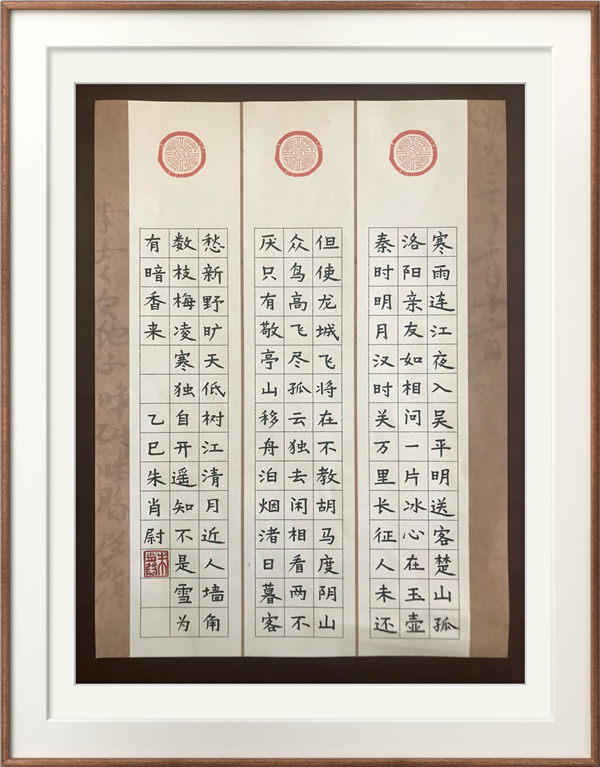 寒雨连江夜入吴平明送客楚山孤
洛阳亲友如相问一片冰心在玉壶
秦时明月汉时关万里长征人未还
但使龙城飞将在不教胡马度阴山
众鸟高飞尽孤云独去闲相看两不
厌只有敬亭山移舟泊烟渚日暮客
愁新野旷天低树江清月近人墙角
数枝梅凌寒独自开遥知不是雪为
有暗香来 乙巳朱肖尉